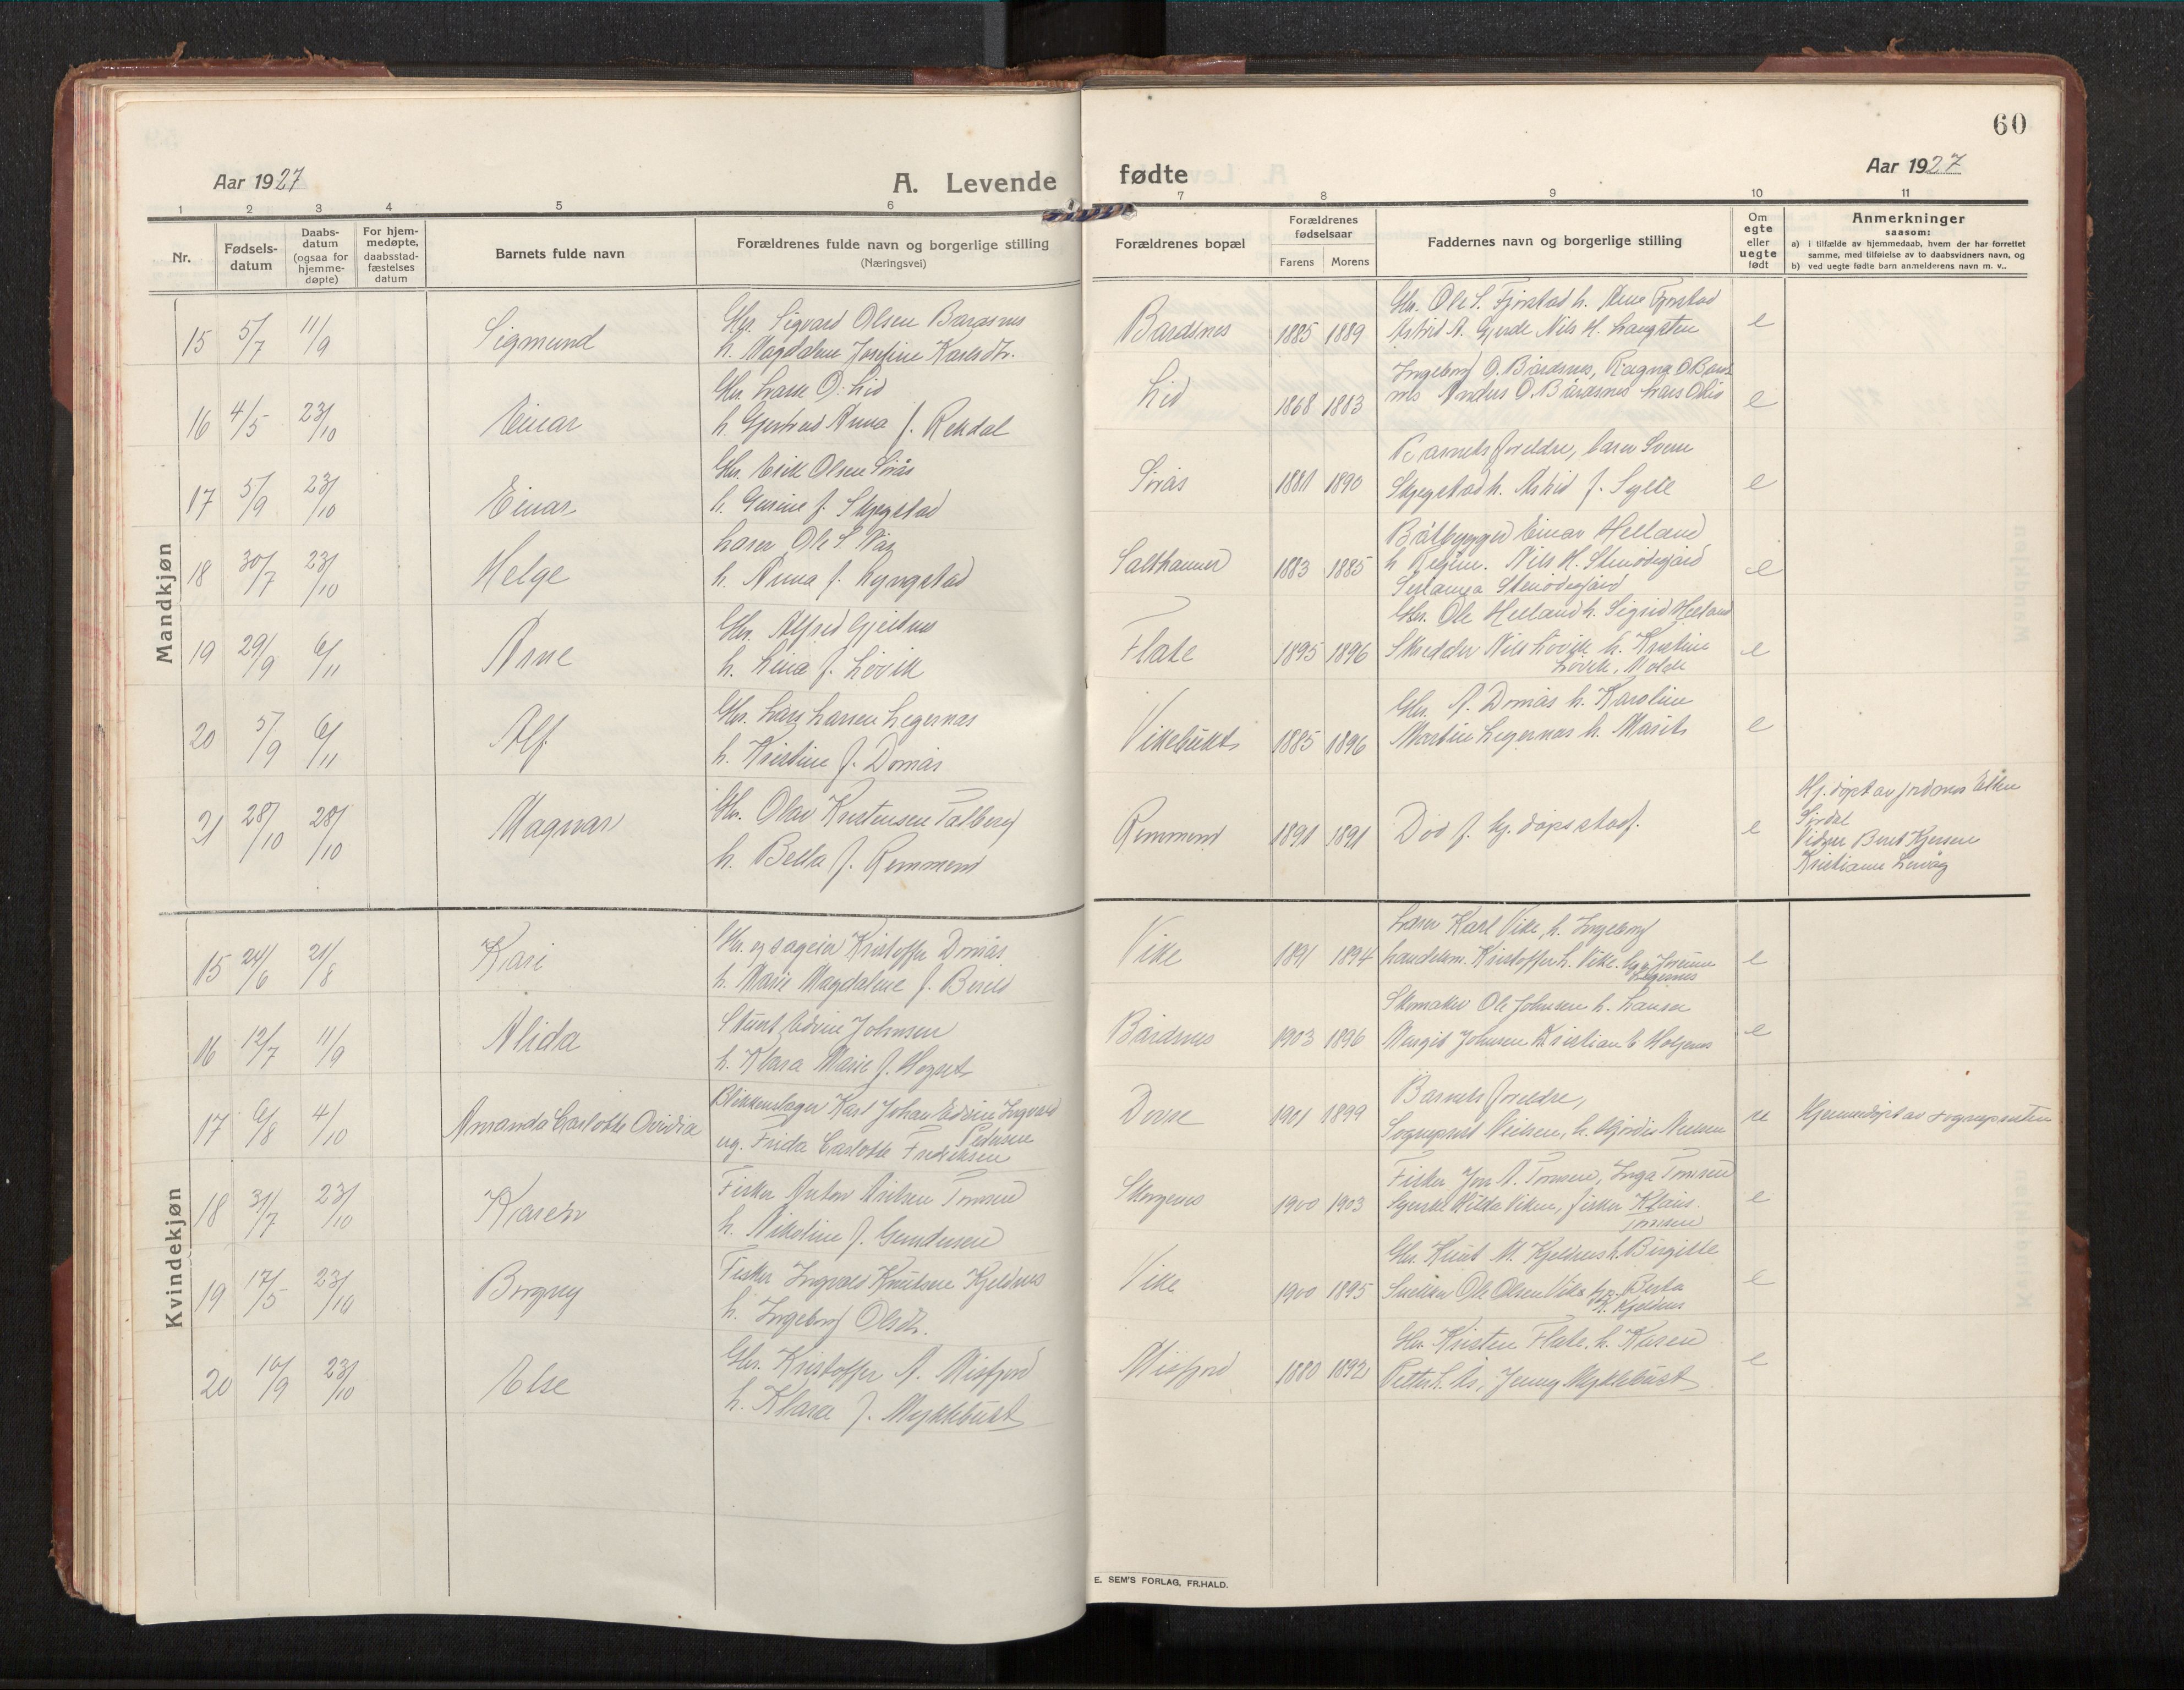 60
Aar 1927
A. Levende fødte
Aar 1927
1 2 3 4 5 6 7 8 9 10 11
Nr.
Fødsels-
datum
Daabs-
datum
(ogsaa for
hjemme-
døpte)
For hjem-
medøpte,
daabsstad-
fæstelses
datum
Barnets fulde navn
Forældrenes fulde navn og borgerlige stilling
(Næringsvei)
Forældrenes bopæl
Forældrenes
fødselsaar
Farens Morens
Faddernes navn og borgerlige stilling
Om
egte
eller
uegte
født
Anmerkninger
saasom:
a) i tilfælde av hjemmedaab, hvem der har forrettet
samme, med tilføielse av to daabsvidners navn, og
b) ved uegte fødte barn anmelderens navn m. v..
Mandkjøn
15 5/7 11/9 Sigmund
Gbr. Sigvard Olsen Bardsnes
h. Magdalene Josefine Karlsdtr.
Bardsnes 1885 1889
Gbr. Ole S. Fjørstad h. Anne Fjørstad
Astrid A. Gjerde Nils H. Langsten
e
16 4/5 23/10 Einar
Gbr. Lasse O. Lid
h. Gjertrud Anna f. Rekdal
Lid 1868 1883
Ingeborg O. Bårdsnes, Ragna O Bards
nes Anders O. Bårdsnes Lars O Lid
e
17 5/9 23/10 Einar
Gbr. Erik Olsen Sørås
h. Gurine f. Skjegstad
Sørås 1881 1890
Barnets foreldre, Svein
Skjegstad h. Astrid f. Sylte
e
18 30/7 23/10 Helge
Ole S. Nås
h. Anna f. Lyngstad
Salthammer 1883 1885
Båtbygger Einar Helland
h Regine. Nils H. Stenødegård
Stenødegård
e
19 29/9 6/11 Arne
Gbr. Alfred Gjeldnes
h. Lina f. Løvik
Flate 1895 1896
Gbr. Ole Helland h. Sigrid Helland
Skredder Nils Løvik h. Kristine
Løvik, Molde
e
20 5/9 6/11 Alf
Gbr. Lars Larsen Legernes
h. Kristine f. Domås
Vikebukt 1885 1896
Gbr. A. Domås h. Karoline
Martin Legernes h. Marit
e
21 28/10 28/10 Magnar
Gbr. Olav Kristensen Talberg
h. Bella f. Remmem
Remmem 1891 1891
Død f. hj. dåps stadf.
e
Hj. døpt av jordmor Ellen
Sørdal
Vidner Berit Kjersem
Kristianne Levåg
Kvindekjøn
15 24/6 21/8 Kari
Gbr. og sageier Kristoffer Domås
h. Marie Magdalene f. Bireli
Vike 1891 1894
Karl Vike, h. Ingeborg
handelsm. Kristoffer L. Vike.
Legernes
e
16 12/7 11/9 Alida
Stuert Edvin Johnsen
h. Klara Marie f. Hognet
Bårdsnes 1903 1896
Skomaker Ole Johnsen h. Hansen
Margit Johnsen Kristian E Helgenes
e
17 6/8 4/10 Amanda Carlotte Ovidia
Blikkenslager Karl Johan Edvin Ingvald
Pedersen
ug. Frida Carlotte Fredriksen
Dovre 1901 1899
Barnets foreldre,
Sogneprest Nielsen, h. Hjørdis Nielsen
ue
Hjemmedøpt av sognepresten
18 31/7 23/10 Karen
Fisker Anton Arilsen Tomren
h. Nikoline f. Gundersen
Skorgenes 1900 1903
Fisker Jon A. Tomren, Inga Tomren
Hilda Viken, fisker Klaus
Tomren
e
19 17/5 23/10 Borgny
Fisker Ingvald Knutsen Kjeldnes
h. Ingeborg Olsdtr.
Vike 1900 1895
Gbr. Knut M. Kjeldnes h. Birgitte
Snekker Ole Olsen Vike Berta
K. Kjeldnes
e
20 10/9 23/10 Else
Gbr. Kristoffer A. Misfjord
h. Klara f. Myklebust
Misfjord 1880 1892
Gbr. Kristen Flate. h. Karen
Petter L. Ås, Jenny Myklebust
e
E. SEM'S FORLAG, FR.HALD.